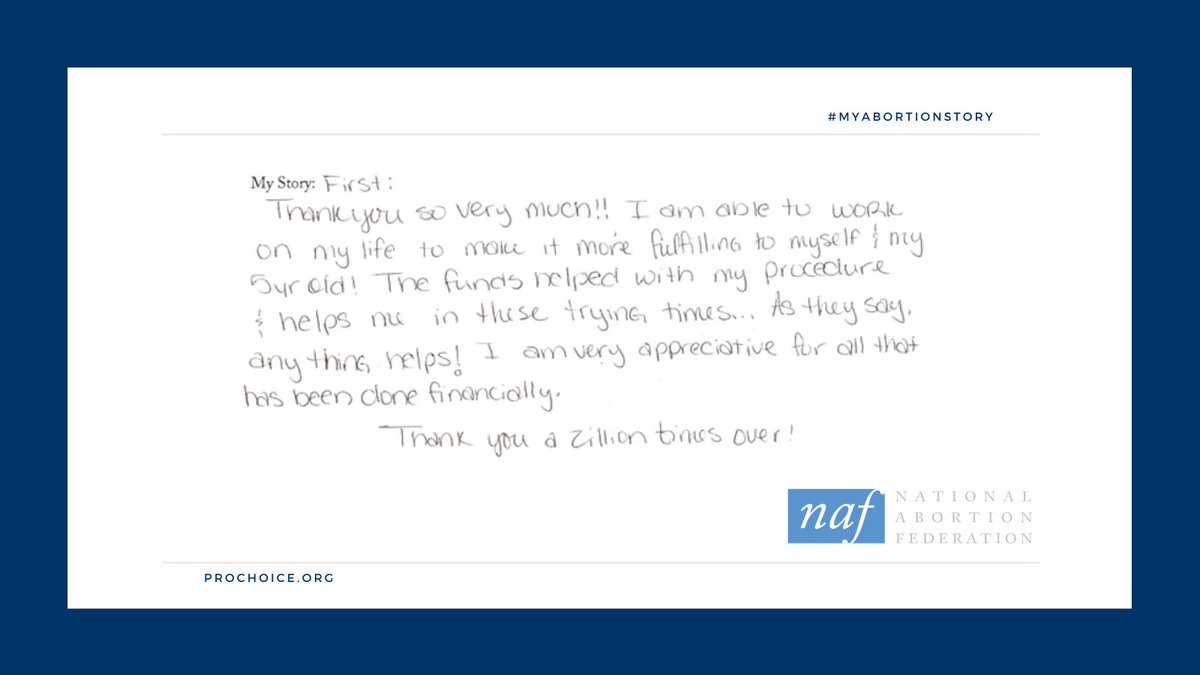 #MYABORTIONSTORY
My Story: First:
Thank you so very much!! I am able to work
on my life to make it more fulfilling to myself & my
5yr old! The funds helped with my procedure
& helps me in these trying times... As they say,
anything helps! I am very appreciative for all that
has been done financially.
Thank you a zillion times over!
naf NATIONAL
ABORTION
FEDERATION
PROCHOICE.ORG